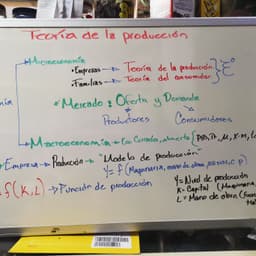 Teoría de la producción
Microeconomía
• Empresas → Teoría de la producción
• Familias → Teoría del consumidor
• Mercado: Oferta y Demanda
Productores Consumidores
Macroeconomía →
Empresa → Producción → "Modelo de producción"
Y = f (Maquinaria, mano de obra,
f(K,L) → Función de producción
Y = Nivel de producción
K = Capital (Maquinaria,
L = Mano de obra